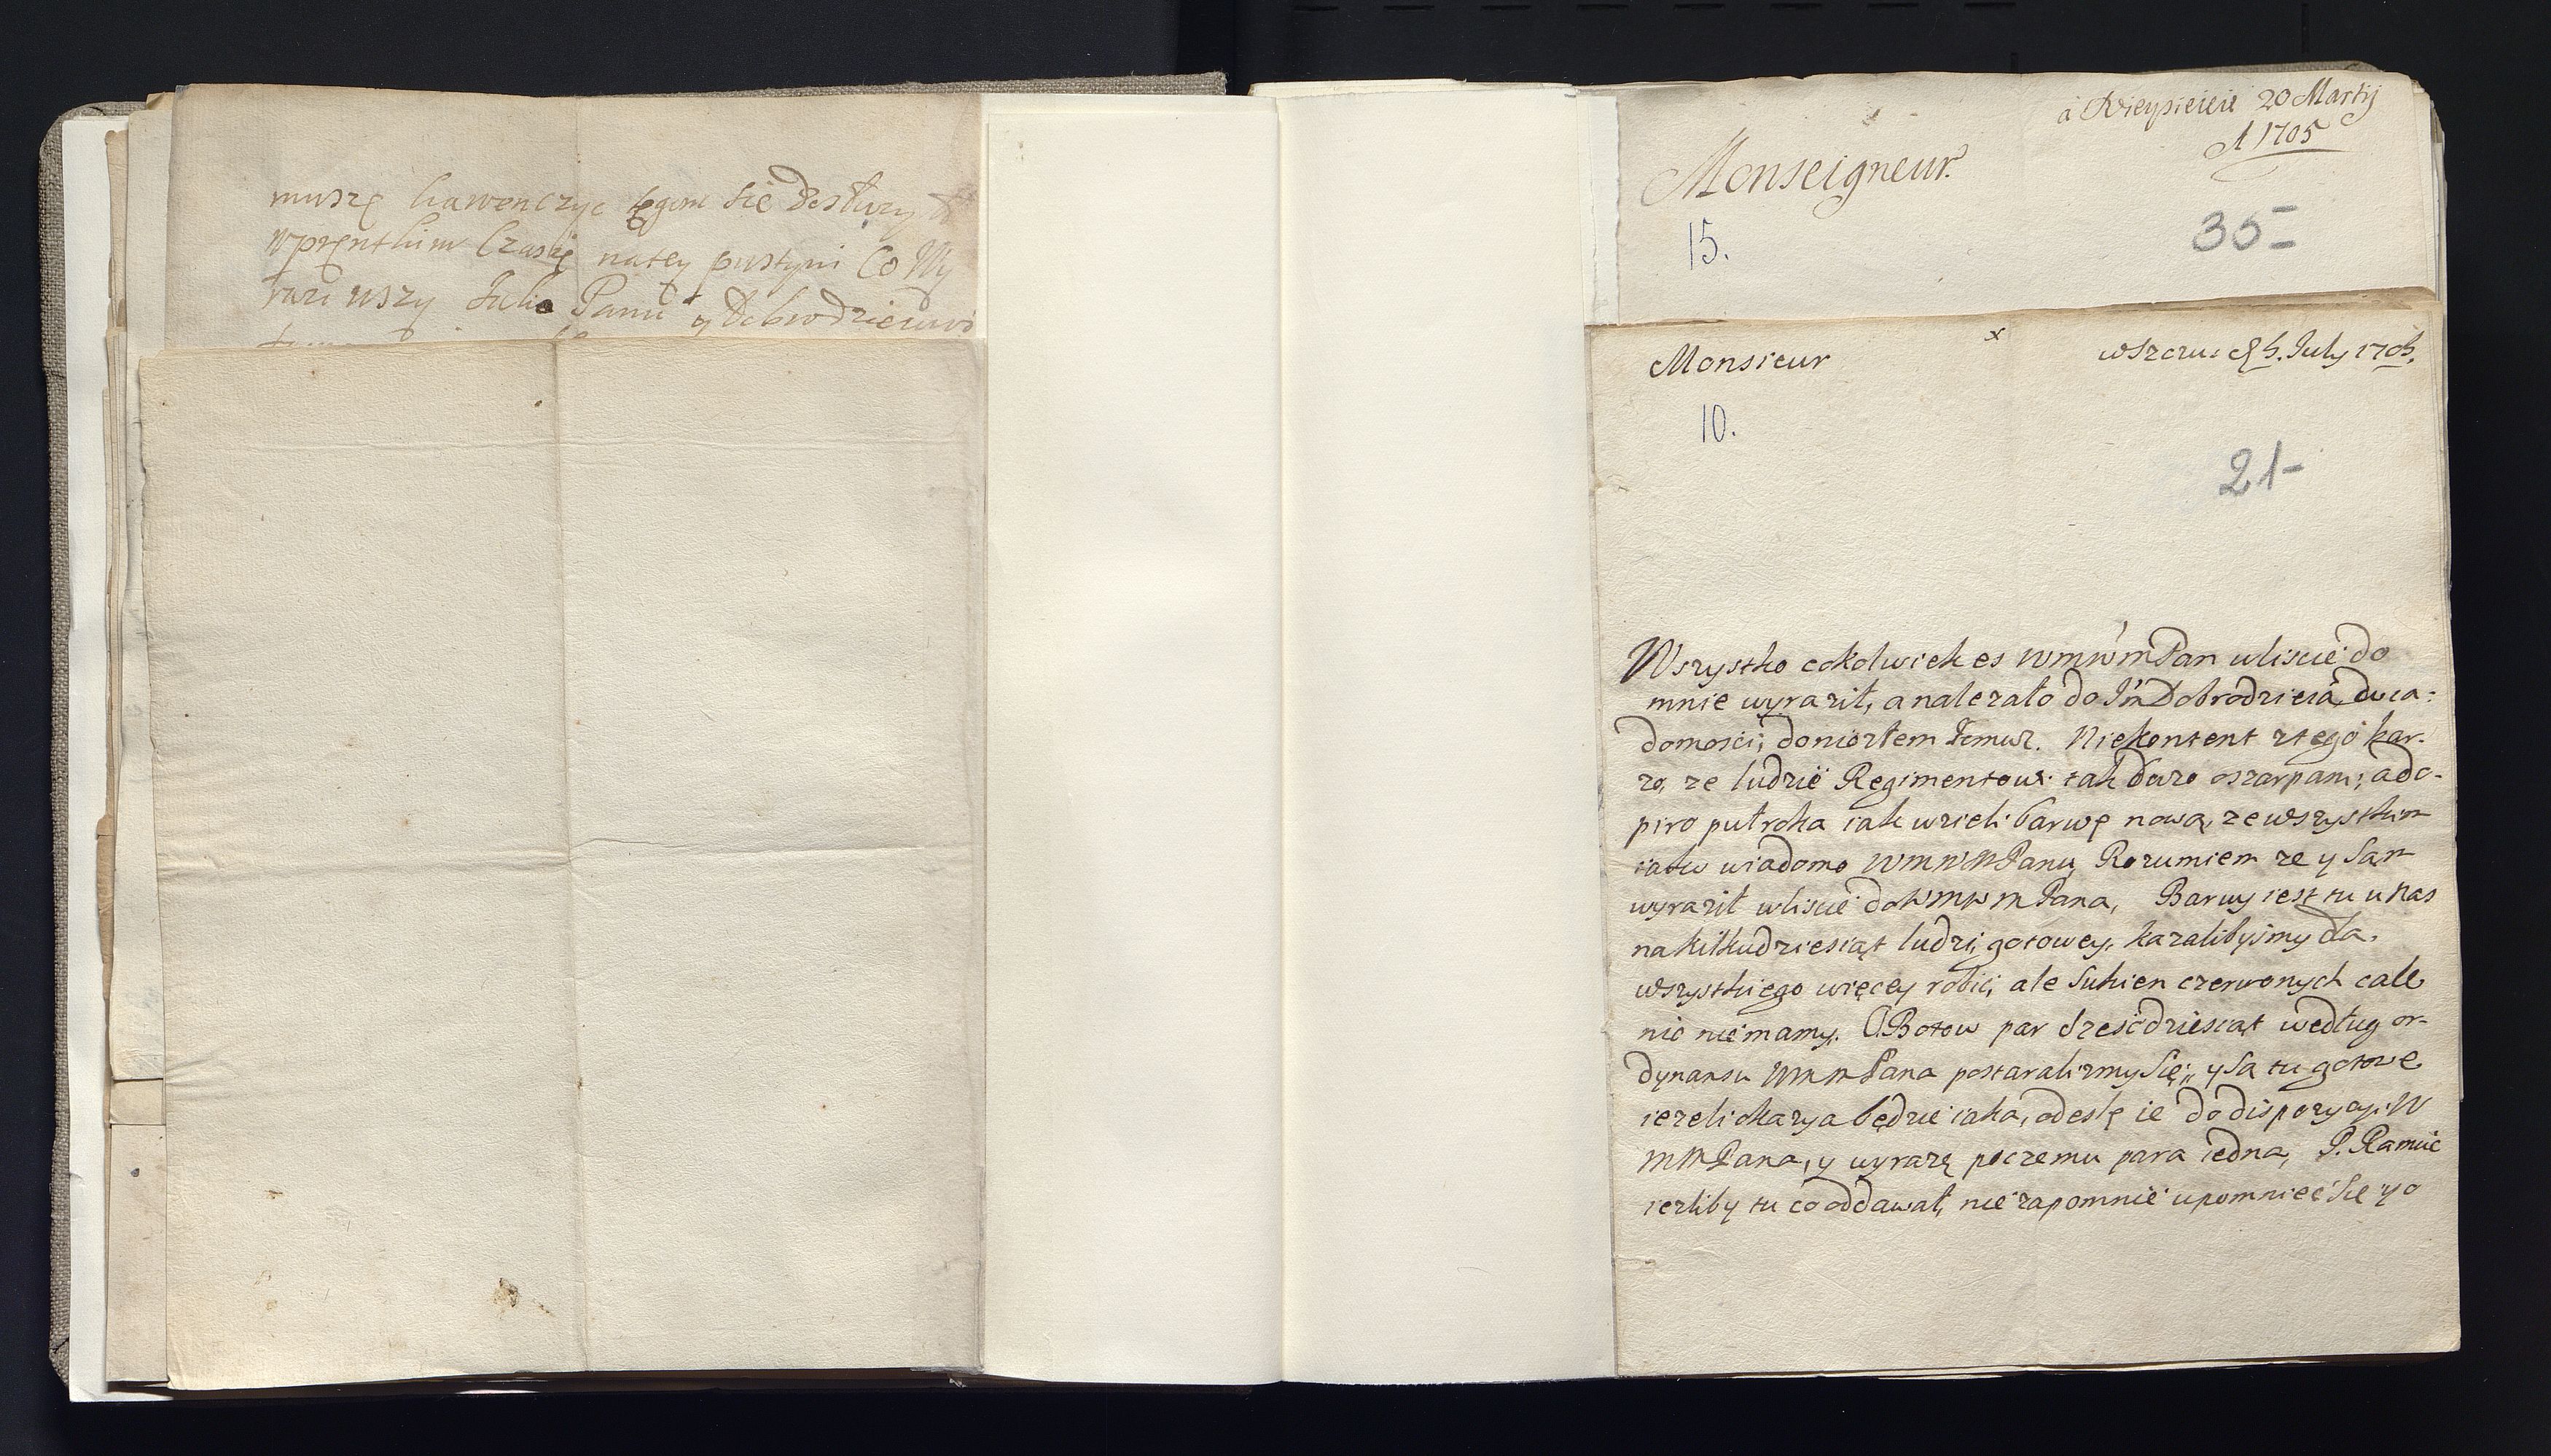 muszę
w pręntkim Czasię na tey pustyni Co Wy
raziwszy Panu y Dobrodzieiowi
a 20 Martij
A 1705
Monseigneur.
15.
35-
x
Monsieur
5. July 1705.
10.
21-
Wszystko cokolwiek es WmWmPan w liscie do
mnie wyraził, a nalezało do Jm Dobrodzieia, dwia-
domosci, doniozłem Jemuz. Niekontent z tego bar-
zo, ze ludzie Regimentowi tak barzo oszarpani, a do-
piro pułroka iak wzieli barwę nową, ze wszystkim
iako wiadomo WmWmPanu, Rozumiem ze y Sam
wyraził w liscie do WmWmPana, Barwy iest tu u Nas
na kilkudziesiąt ludzi, gotowey, kazalibysmy dla
wszystkiego więcey robic, ale Sukien czerwonych cale
nic nie mamy. O Botow par szescdziesiąt według or-
dynansu WmmPana postaralizmy się, y Sa tu gotowe
iezeli okazya będzie iaka, odeslę ie do dispozycyi W
mmPana, y wyrazę po czemu para iedna, P.
iezliby tu co oddawał, nie zapomnie upomniec Się y o